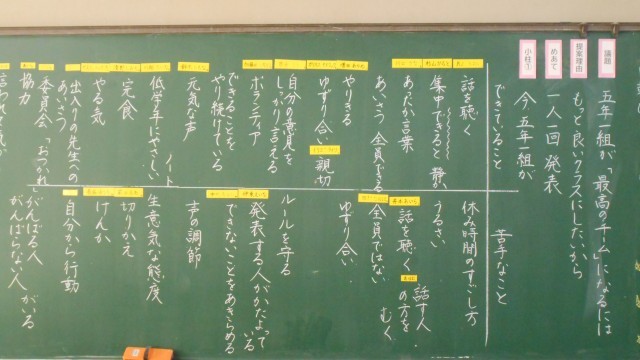 議題
五年一組が「最高のチーム」になるには
提案理由
もっと良いクラスにしたいから
めあて
一人一回発表
小柱①
今、五年一組が
できていること
苦手なこと
話を聴く
集中できると静か
あたたか言葉
あいさつ 全員する
やりきる
ゆずり合い 親切
自分の意見を
しっかり言える
ボランティア
できることを
やり続けている
元気な声
ノート
低学年にやさしい
完食
やる気
出入りの先生への
あいさつ
委員会
協力
休み時間のすごし方
うるさい
話を聴く
話す人
の方を
むく
全員ではない
ゆずり合い
ルールを守る
発表する人がかたよって
いる
できないことをあきらめる
声の調節
生意気な態度
切りかえ
けんか
自分から行動
がんばる人
がんばらない人がいる